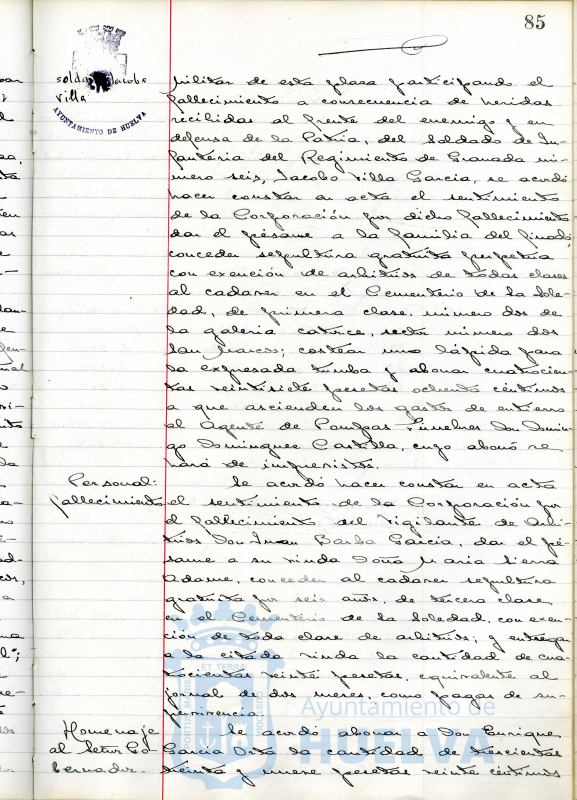 85
soldado Jacobo
Villa
AYUNTAMIENTO DE HUELVA
militar de esta plaza participando el
fallecimiento a consecuencia de heridas
recibidas al frente del enemigo y en
defensa de la Patria, del Soldado de In-
fantería del Regimiento de Granada nú-
mero seis, Jacobo Villa García, se acordó
hacer constar en acta el sentimiento
de la Corporación por dicho fallecimiento
dar el pésame a la familia del finado,
conceder sepultura gratuita perpetua
con exención de arbitrios de todas clases
al cadaver en el Cementerio de la Sole-
dad, de primera clase, número dos de
la galería catorce, sector número dos
San Marcos; costear una lápida para
la expresada tumba y abonar cuatrocien-
tas veintisiete pesetas ochenta céntimos
a que ascienden los gastos de entierro
al Agente de Pompas Fúnebres Don Domin-
go Dominguez Castilla, cuyo abono se
hará de imprevistos.
Personal:
fallecimiento
Se acordó hacer constar en acta
el sentimiento de la Corporación por
el fallecimiento del Vigilante de Arbi-
trios Don Juan Barba García, dar el pé-
same a su viuda Doña María Sierra
Adame, conceder al cadaver sepultura
gratuita por seis años, de tercera clase
en el Cementerio de la Soledad, con exen-
ción de toda clase de arbitrios; y entregar
a la citada viuda la cantidad de cua-
trocientas veinte pesetas, equivalente al
jornal de dos meses, como pagas de su-
pervivencia.
Homenaje
al Señor Go-
bernador.
Se acordó abonar a Don Enrique
García Orta la cantidad de trescientas
treinta y nueve pesetas veinte céntimos
PORTUS MARIS ET TERRAE CUSTODIA
Ayuntamiento de
HUELVA